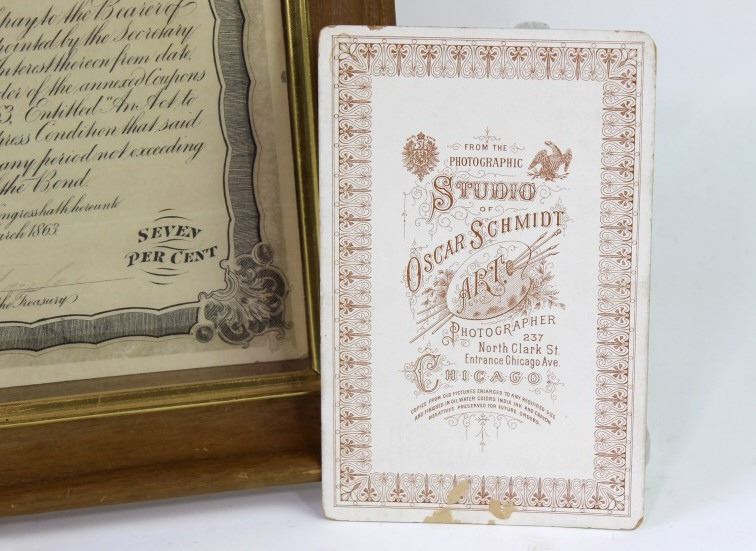 pay to the Bearer of
pointed by the Secretary
Interest thereon from date,
der of the annexed Coupons
3, Entitled "An Act to
press Condition that said
any period not exceeding
the Bond.
ongress hath hereunto
arch 1863.
SEVEN
PER CENT
the Treasury
FROM THE
PHOTOGRAPHIC
STUDIO
OF
OSCAR SCHMIDT
ART
PHOTOGRAPHER
237
North Clark St.
Entrance Chicago Ave.
CHICAGO.
COPIES FROM OLD PICTURES ENLARGED TO ANY REQUIRED SIZE
AND FINISHED IN OIL WATER COLORS INDIA INK AND CRAYON.
NEGATIVES PRESERVED FOR FUTURE ORDERS.